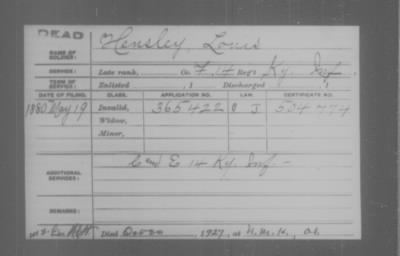 DEAD
NAME OF SOLDIER: Hensley, Louis
SERVICE: Late rank, Co. F, 14 Reg't Ky. Inf.
TERM OF SERVICE: Enlisted , 1 Discharged , 1
DATE OF FILING. CLASS. APPLICATION NO. LAW. CERTIFICATE NO.
1880 May 19 Invalid, 365422 J 534774
Widow,
Minor,
ADDITIONAL SERVICES: E 14 Ky. Inf.
REMARKS:
Died Oct 20, 1927, at